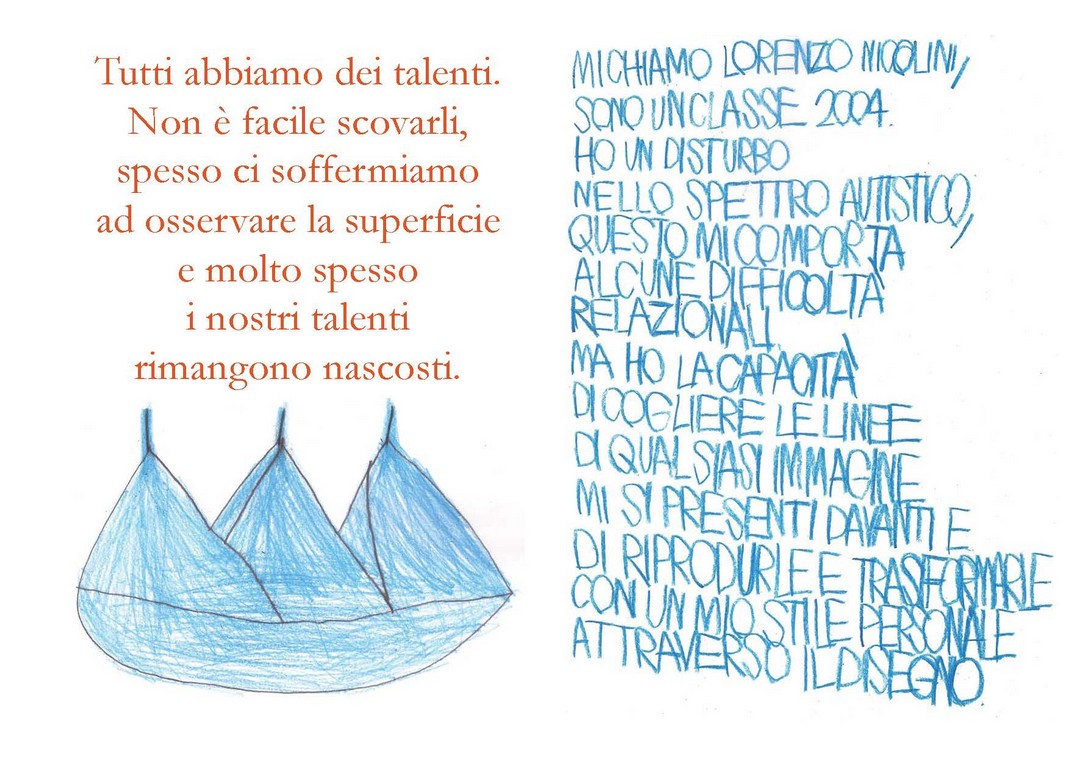 Tutti abbiamo dei talenti.
Non è facile scovarli,
spesso ci soffermiamo
ad osservare la superficie
e molto spesso
i nostri talenti
rimangono nascosti.
MI CHIAMO LORENZO NICOLINI,
SONO UN CLASSE 2004.
HO UN DISTURBO
NELLO SPETTRO AUTISTICO,
QUESTO MI COMPORTA
ALCUNE DIFFICOLTÀ
RELAZIONALI,
MA HO LA CAPACITÀ
DI COGLIERE LE LINEE
DI QUALSIASI IMMAGINE
MI SI PRESENTI DAVANTI E
DI RIPRODURLE E TRASFORMARLE
CON UN MIO STILE PERSONALE
ATTRAVERSO IL DISEGNO.